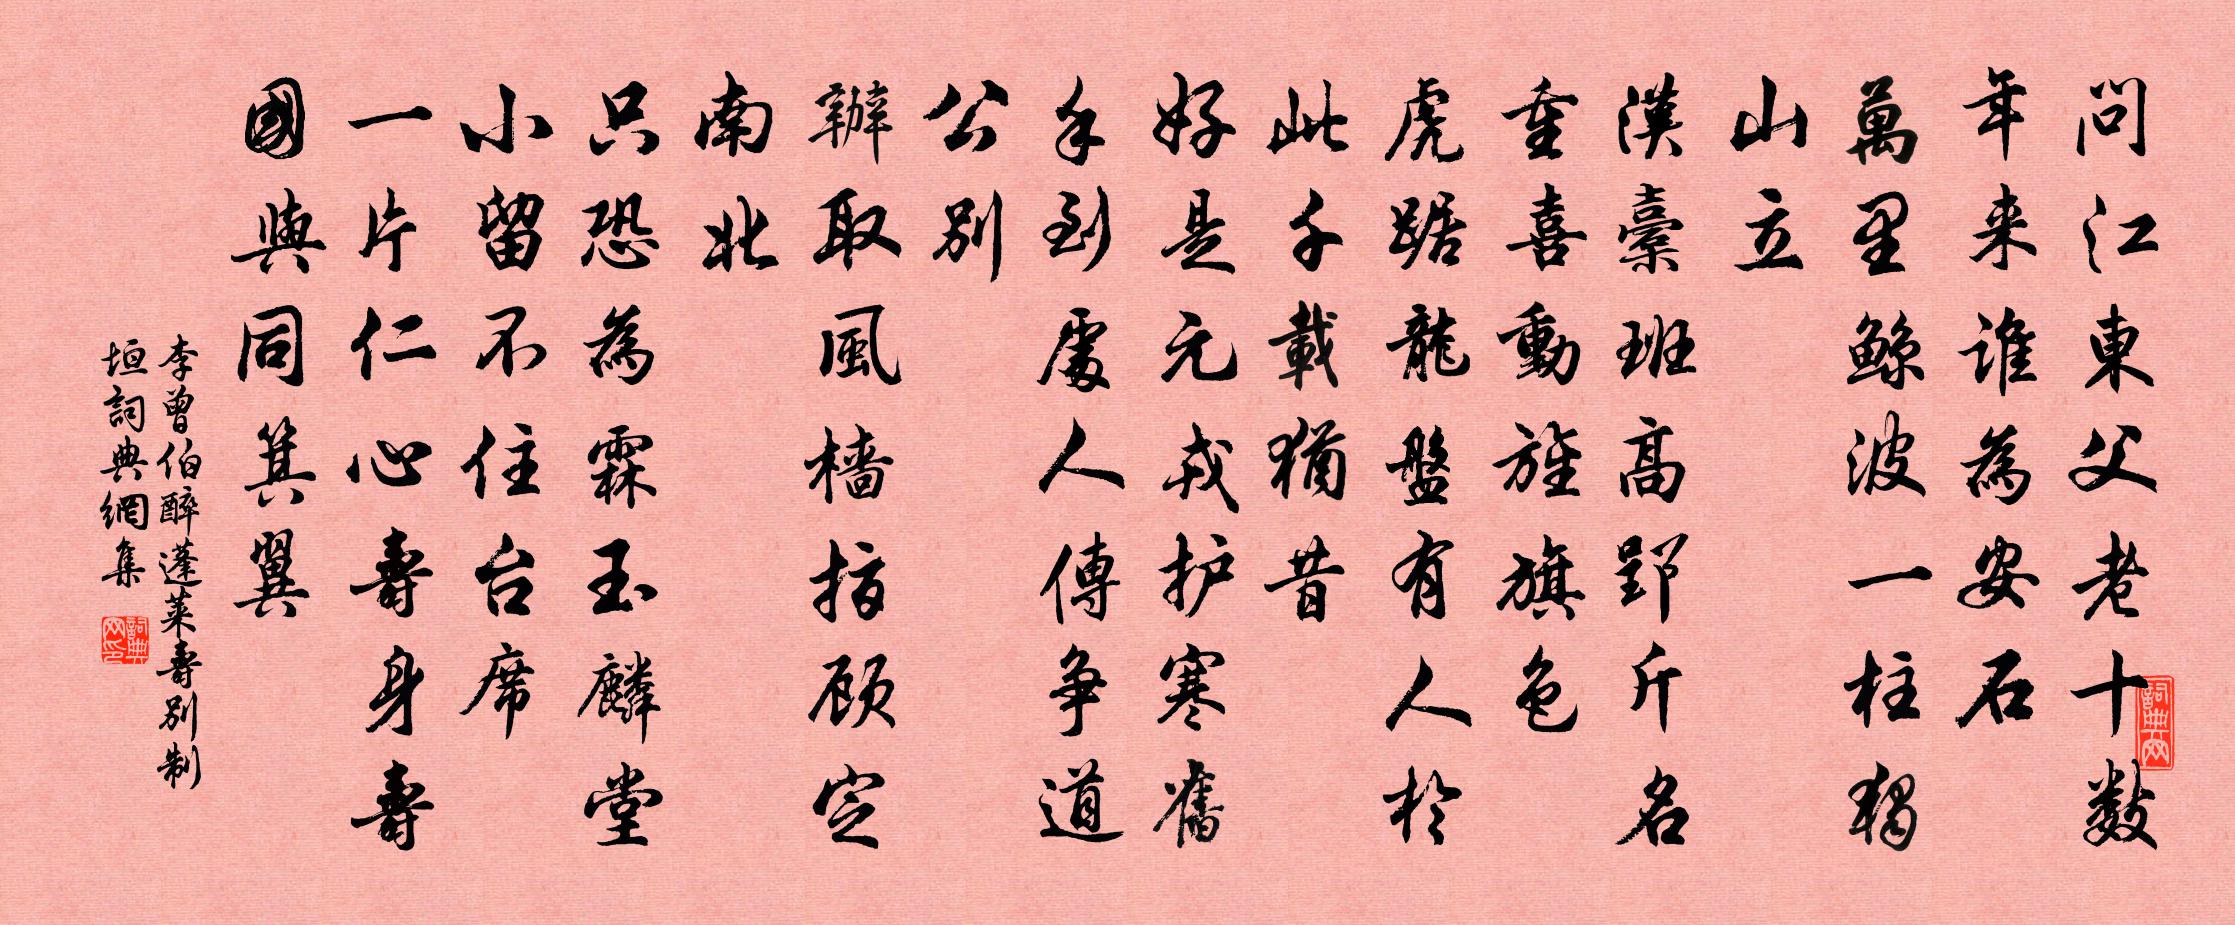 問江東父老十数
年来谁為安石
萬里鲸波一柱獨
山立
漢橐班高郢斤名
重喜動旌旗色
虎踞龍盤有人於
此千載猶昔
好是元戎护寒舊
手到處人傳争道
公别
辦取風檣指顾定
南北
只恐為霖玉麟堂
小留不住台席
一片仁心壽身壽
國與同箕翼
李曾伯醉蓬莱壽别制
垣詞典網集
詞典网
詞典网印